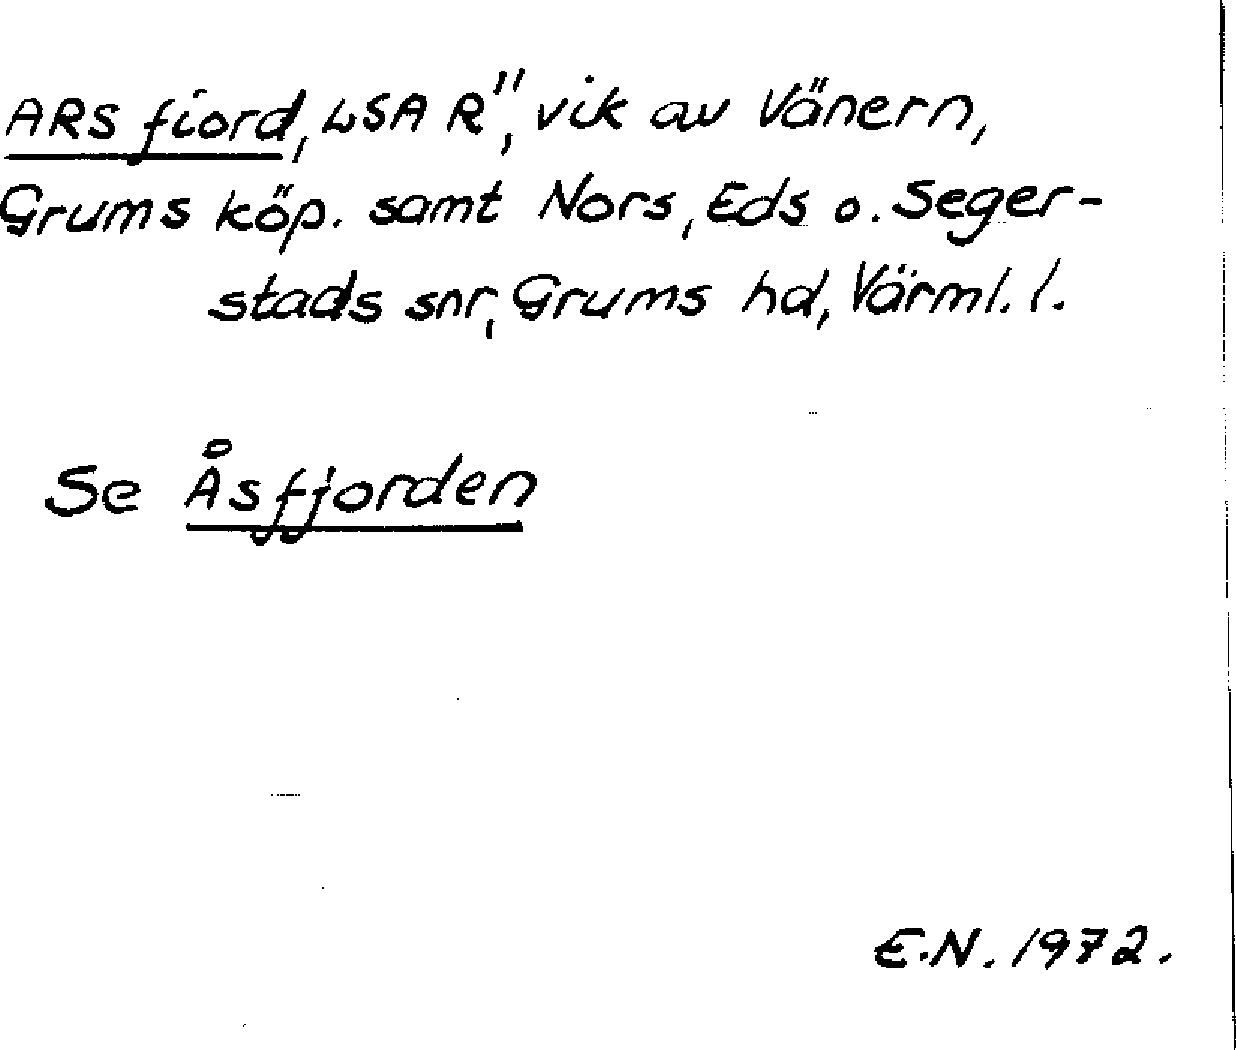 ARS fiord, LSA R", vik av Vänern,
Grums köp. samt Nors, Eds o. Seger-
stads snr, Grums hd, Värml. l.
Se Åsfjorden
E.N. 1972.